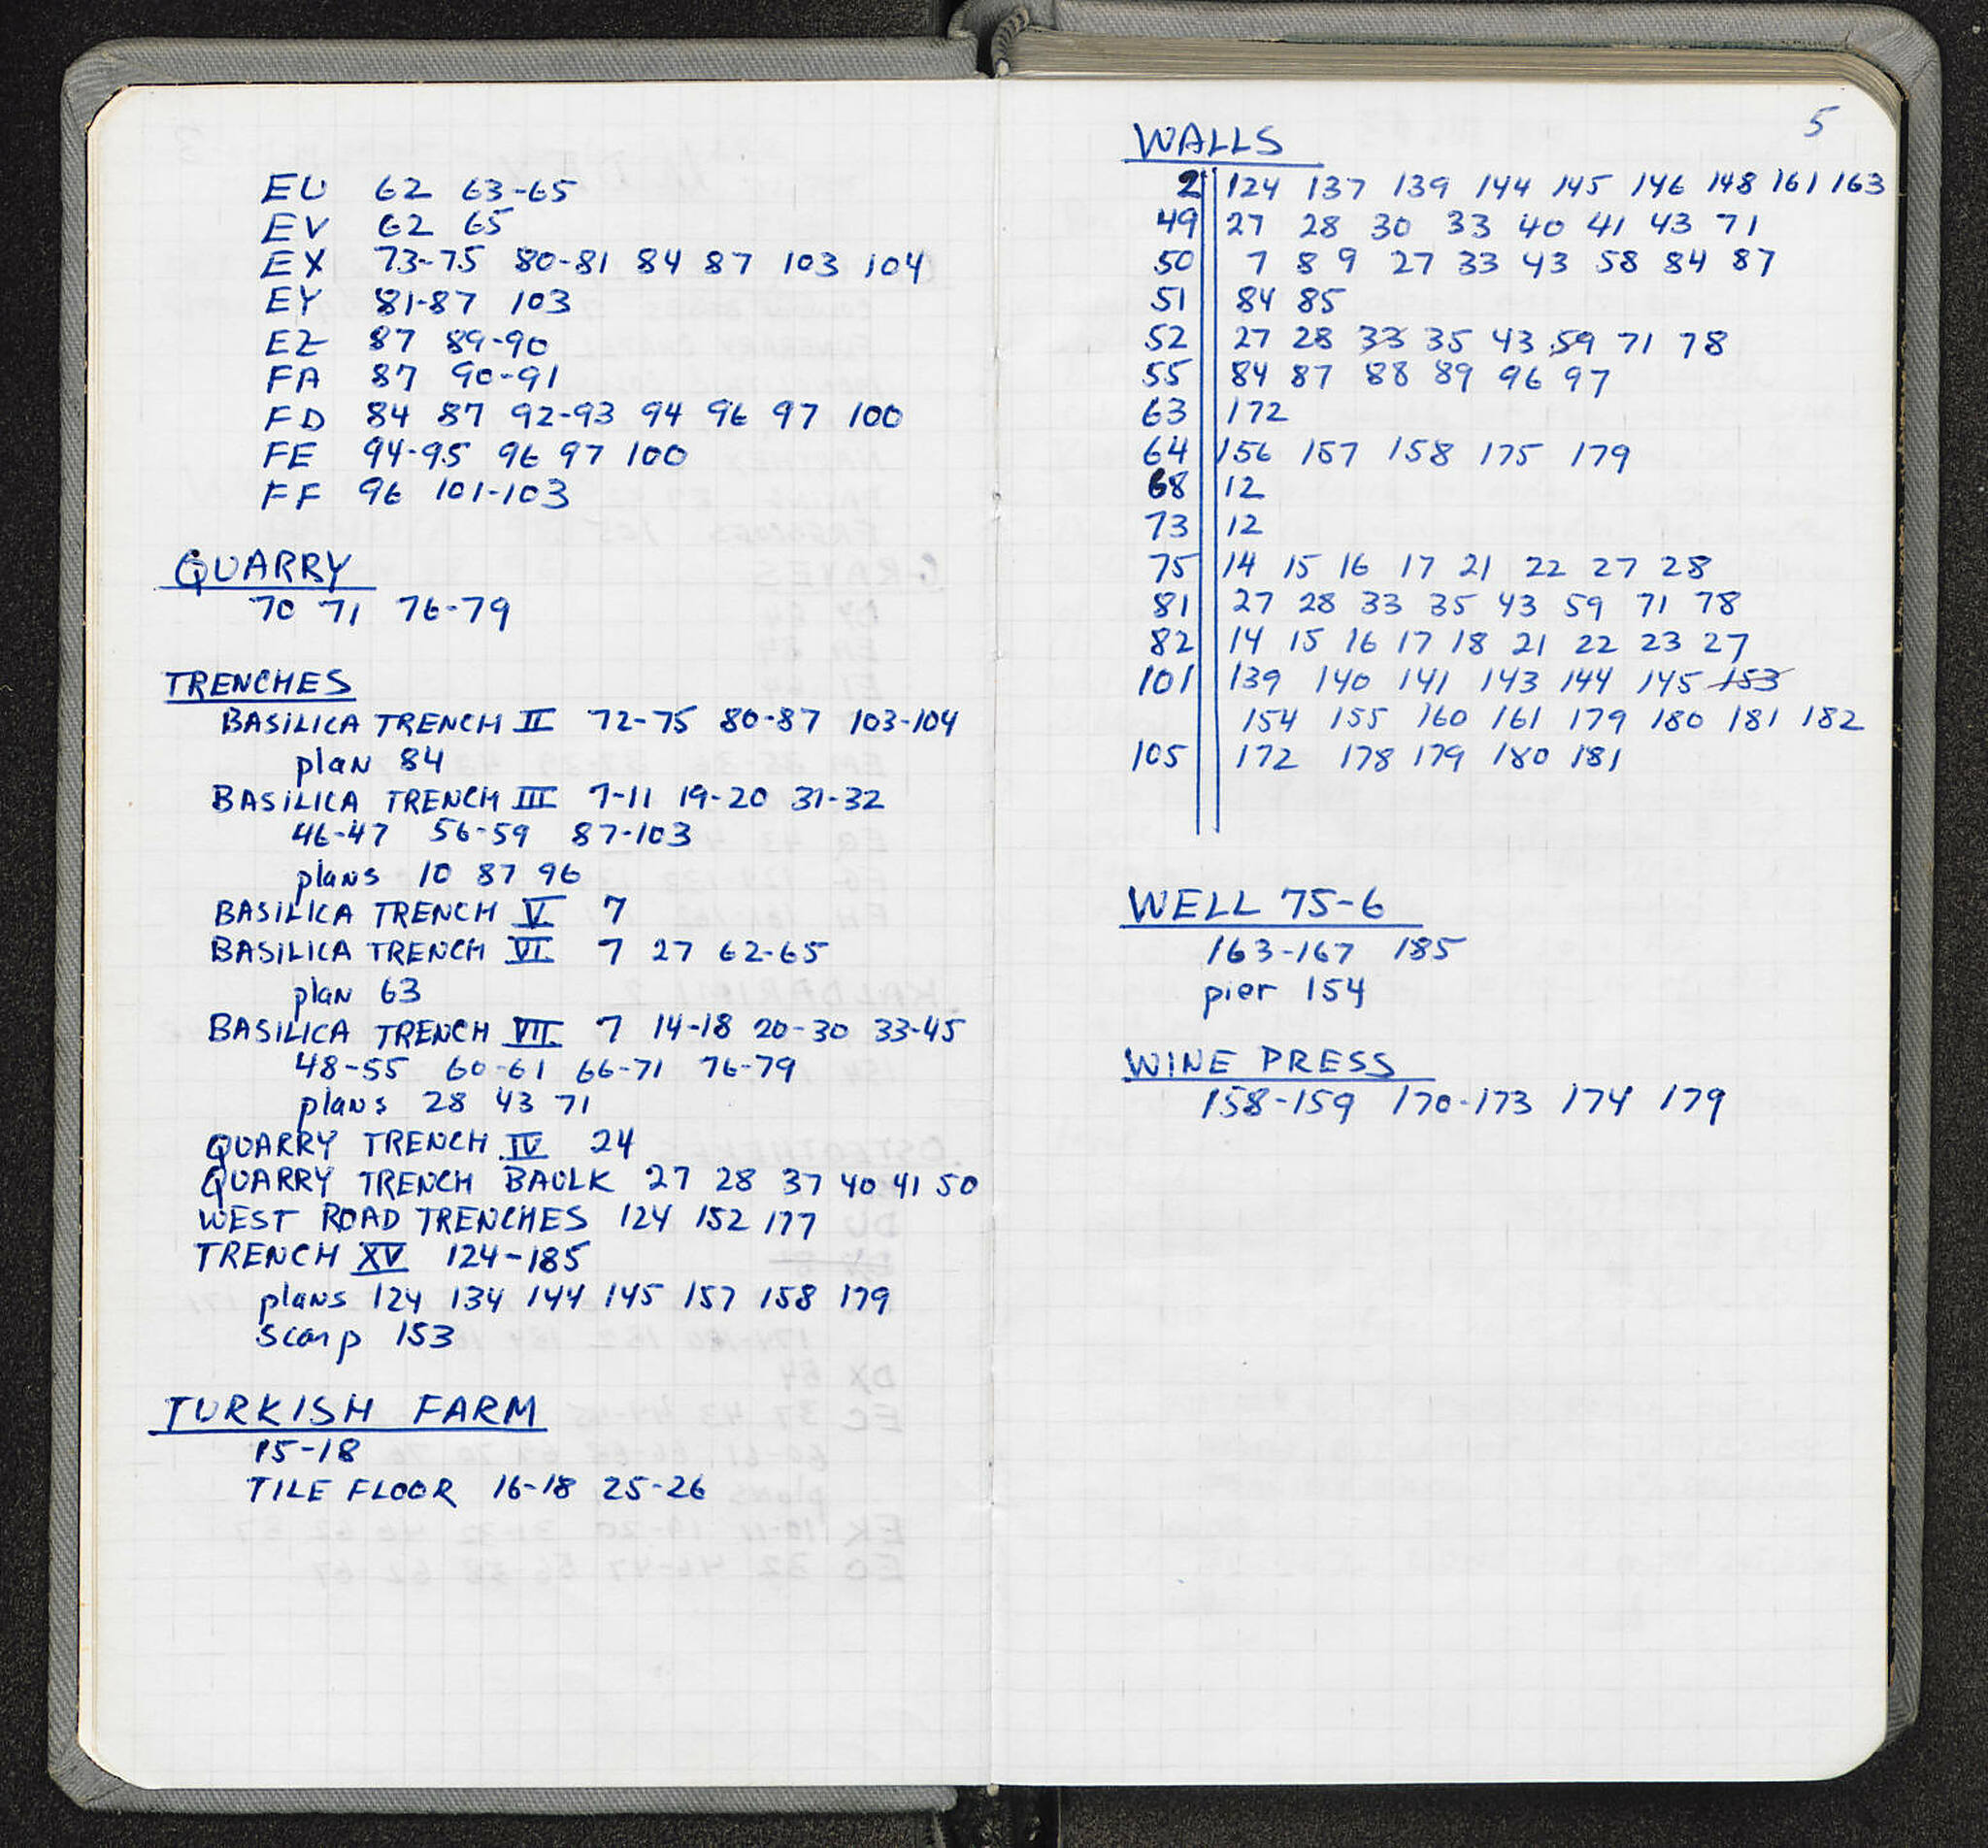 EU 62 63-65
EV 62 65
EX 73-75 80-81 84 87 103 104
EY 81-87 103
EZ 87 89-90
FA 87 90-91
FD 84 87 92-93 94 96 97 100
FE 94-95 96 97 100
FF 96 101-103
QUARRY
70 71 76-79
TRENCHES
BASILICA TRENCH II 72-75 80-87 103-104
plan 84
BASILICA TRENCH III 7-11 19-20 31-32
46-47 56-59 87-103
plans 10 87 96
BASILICA TRENCH V 7
BASILICA TRENCH VI 7 27 62-65
plan 63
BASILICA TRENCH VII 7 14-18 20-30 33-45
48-55 60-61 66-71 76-79
plans 28 43 71
QUARRY TRENCH IV 24
QUARRY TRENCH BAULK 27 28 37 40 41 50
WEST ROAD TRENCHES 124 152 177
TRENCH XV 124-185
plans 124 134 144 145 157 158 179
scarp 153
TURKISH FARM
15-18
TILE FLOOR 16-18 25-26
5
WALLS
2 124 137 139 144 145 146 148 161 163
49 27 28 30 33 40 41 43 71
50 7 8 9 27 33 43 58 84 87
51 84 85
52 27 28 33 35 43 59 71 78
55 84 87 88 89 96 97
63 172
64 156 157 158 175 179
68 12
73 12
75 14 15 16 17 21 22 27 28
81 27 28 33 35 43 59 71 78
82 14 15 16 17 18 21 22 23 27
101 139 140 141 143 144 145 153
154 155 160 161 179 180 181 182
105 172 178 179 180 181
WELL 75-6
163-167 185
pier 154
WINE PRESS
158-159 170-173 174 179